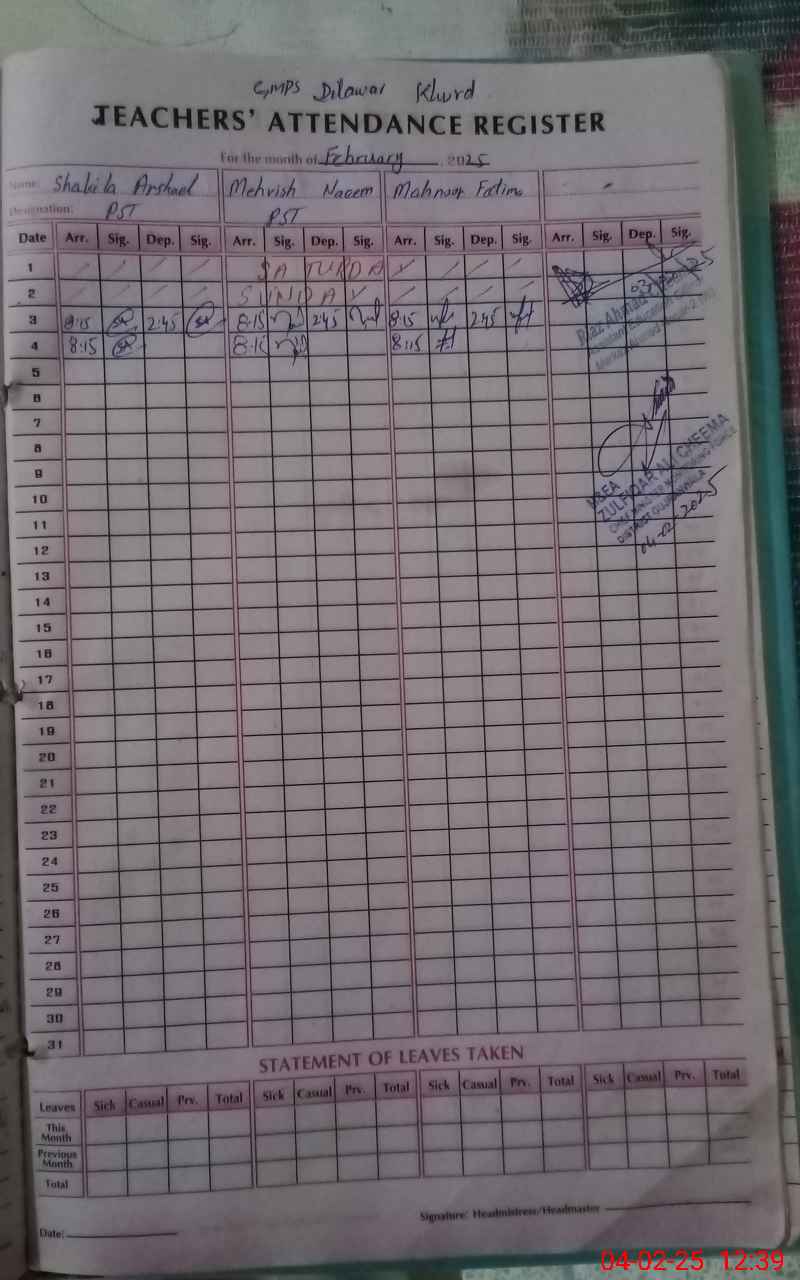 GMPS Dilawar Khurd
TEACHERS' ATTENDANCE REGISTER
For the month of February, 2025
Name: Shakila Arshad Mehvish Naeem Mahnoor Fatima -
Designation: PST PST
Date Arr. Sig. Dep. Sig. Arr. Sig. Dep. Sig. Arr. Sig. Dep. Sig. Arr. Sig. Dep. Sig.
1 SATURDAY
2 SUNDAY
3 8:15 2:45 8:15 2:45 8:15 2:45
4 8:15 8:15 8:15
5
6
7
8
9
10
11
12
13
14
15
16
17
18
19
20
21
22
23
24
25
26
27
28
29
30
31
Riaz Ahmad
MEA
ZULFIQAR ALI CHEEMA
04-02-2025
STATEMENT OF LEAVES TAKEN
Leaves Sick Casual Prv. Total Sick Casual Prv. Total Sick Casual Prv. Total Sick Casual Prv. Total
This Month
Previous Month
Total
Signature: Headmistress/Headmaster
Date:
04-02-25 12:39